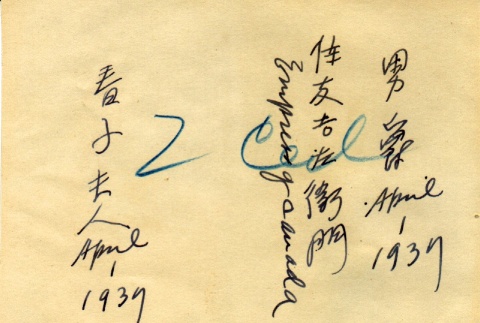 男爵 April 1 1937
住友吉左衛門
Empress of Canada
2 Col
春子夫人 April 1 1937